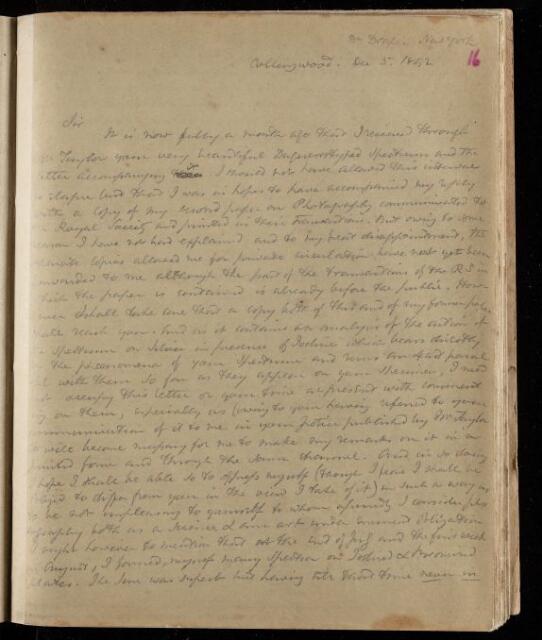 Dr Draper. New York
Collingwood. Dec 5. 1842
16
Sir
It is now fully a month ago that I received through
Taylor your very beautiful Daguerreotyped Spectrum and the
letter accompanying it. I should not have allowed this interval
to elapse but that I was in hopes to have accompanied my reply
with a copy of my second paper on Photography communicated to
Royal Society and printed in their Transactions. But owing to some
reason I have not had explained and to my great disappointment, the
copies allowed me for private circulation have not yet been
forwarded to me although the part of the Transactions of the RS in
which the paper is contained is already before the public. How-
ever I shall take care that a copy both of this and of my former paper
reach you. And as it contains an analysis of the action of
Spectrum on Silver in presence of Iodine which bears directly
the phenomena of your Spectrum and runs
with them so far as they appear on your Specimen, I need
not occupy this letter or your time at present with comment
on them, especially as (owing to your having referred to your
communication of it to me in your notice published by Mr Taylor
it will become necessary for me to make my remarks on it in a
printed form and through the same channel. And in so doing
hope I shall be able so to express myself (though I fear I shall be
obliged to differ from you in the view I take of it) in such a way as
to be not unpleasing to yourself to whom assuredly I consider
Photography both as a science & an art under eminent obligation
I ought however to mention that at the end of July and the first week
August, I formed, myself many Spectra on Iodized & Bromured
plates. The Sun was superb but having till that time never in